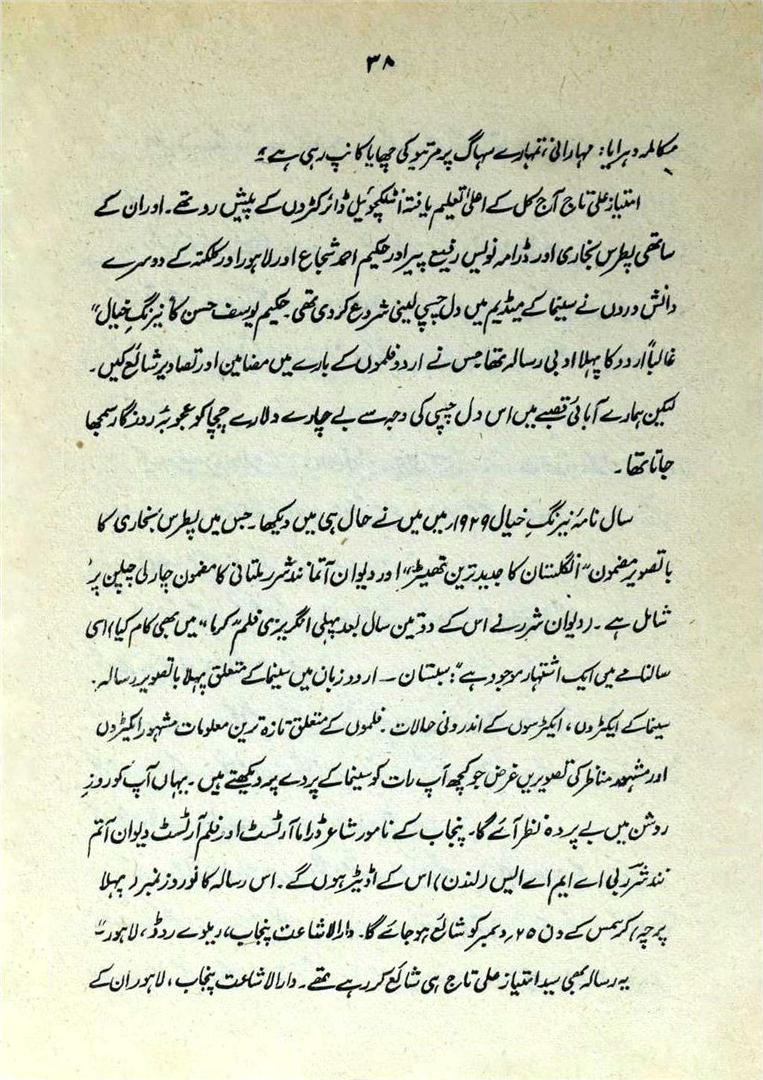 ۳۸
مکالمہ دہرایا: مہارانی، تمہارے سہاگ پر مرتیو کی چھایا کانپ رہی ہے"
امتیاز علی تاج آج کل کے اعلیٰ تعلیم یافتہ انٹلکچوئیل ڈائرکٹروں کے پیش رو تھے۔ اور ان کے
ساتھی پطرس بخاری اور ڈرامہ نویس رفیع پیر اور حکیم احمد شجاع اور لاہور اور کلکتہ کے دوسرے
دانش وروں نے سینما کے میڈیم میں دل چسپی لینی شروع کر دی تھی۔ حکیم یوسف حسن کا "نیرنگِ خیال"
غالباً اردو کا پہلا ادبی رسالہ تھا جس نے اردو فلموں کے بارے میں مضامین اور تصاویر شائع کیں۔
لیکن ہمارے آبائی قصبے میں اس دل چسپی کی وجہ سے بے چارے دلارے چچا کو عجوبۂ روزگار سمجھا
جاتا تھا۔
سال نامہ نیرنگِ خیال ۱۹۲۹ء میں میں نے حال ہی میں دیکھا۔ جس میں پطرس بخاری کا
باتصویر مضمون "انگلستان کا جدید ترین تھیٹر" اور دیوان آتمانند شرر ملتانی کا مضمون چارلی چپلن پر
شامل ہے۔ (دیوان شرر نے اس کے دو تین سال بعد پہلی انگریزی فلم "کرما" میں بھی کام کیا) اسی
سالنامے میں ایک اشتہار موجود ہے: "سبستان — اردو زبان میں سینما کے متعلق پہلا باتصویر رسالہ۔
سینما کے ایکٹروں، ایکٹرسوں کے اندرونی حالات۔ فلموں کے متعلق تازہ ترین معلومات مشہور ایکٹروں
اور مشہور مناظر کی تصویریں غرض جو کچھ آپ رات کو سینما کے پردے پہ دیکھتے ہیں۔ یہاں آپ کو روزِ
روشن میں بے پردہ نظر آئے گا۔ پنجاب کے نامور شاعر ڈراما آرٹسٹ اور فلم آرٹسٹ دیوان آتم
نند شرر بی اے ایم اے ایس (لندن) اس کے اڈیٹر ہوں گے۔ اس رسالہ کا نوروز نمبر (پہلا
پرچہ) کرسمس کے دن ۲۵؍ دسمبر کو شائع ہو جائے گا۔ دارالاشاعت پنجاب، ریلوے روڈ، لاہور۔"
یہ رسالہ بھی سید امتیاز علی تاج ہی شائع کر رہے تھے۔ دارالاشاعت پنجاب، لاہور ان کے